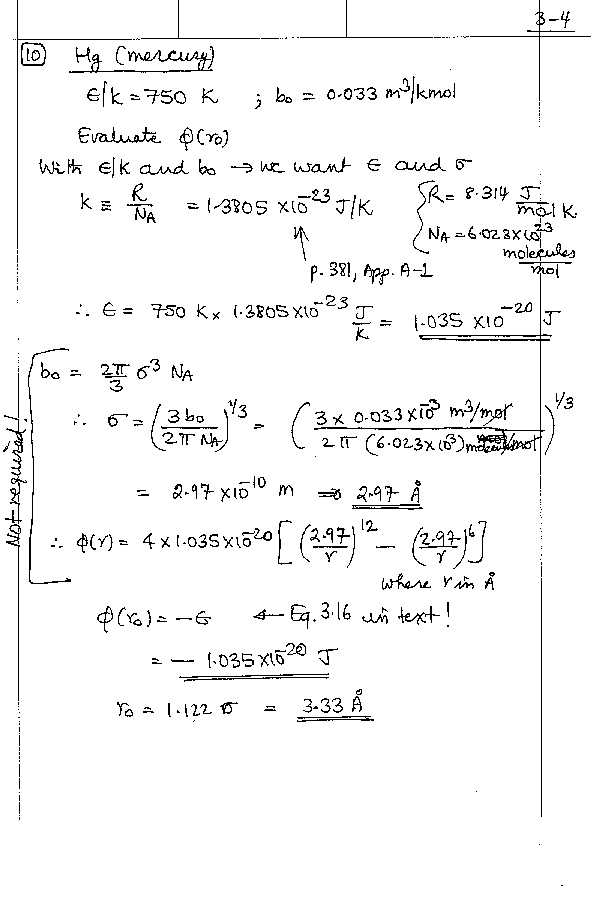 3-4
10 Hg (mercury)
ϵ/k = 750 K ; b₀ = 0.033 m³/kmol
Evaluate ϕ(r₀)
With ϵ/k and b₀ → we want ϵ and σ
k ≡ R/N_A = 1.3805 ×10⁻²³ J/K { R = 8.314 J/mol K
N_A = 6.023×10²³ molecules/mol
p. 381, App. A-1
∴ ϵ = 750 K × 1.3805×10⁻²³ J/K = 1.035 ×10⁻²⁰ J
Not required!
b₀ = 2π/3 σ³ N_A
∴ σ = (3 b₀ / 2π N_A)^1/3 = (3 × 0.033×10⁻³ m³/mol / 2π (6.023×10²³) molecules/mol)^1/3
= 2.97 ×10⁻¹⁰ m ⇒ 2.97 Å
∴ ϕ(r) = 4×1.035×10⁻²⁰ [(2.97/r)¹² − (2.97/r)⁶]
where r in Å
ϕ(r₀) = −ϵ ← Eq. 3.16 in text!
= − 1.035×10⁻²⁰ J
r₀ = 1.122 σ = 3.33 Å